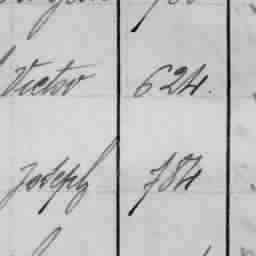 Victor 624.
Joseph 784